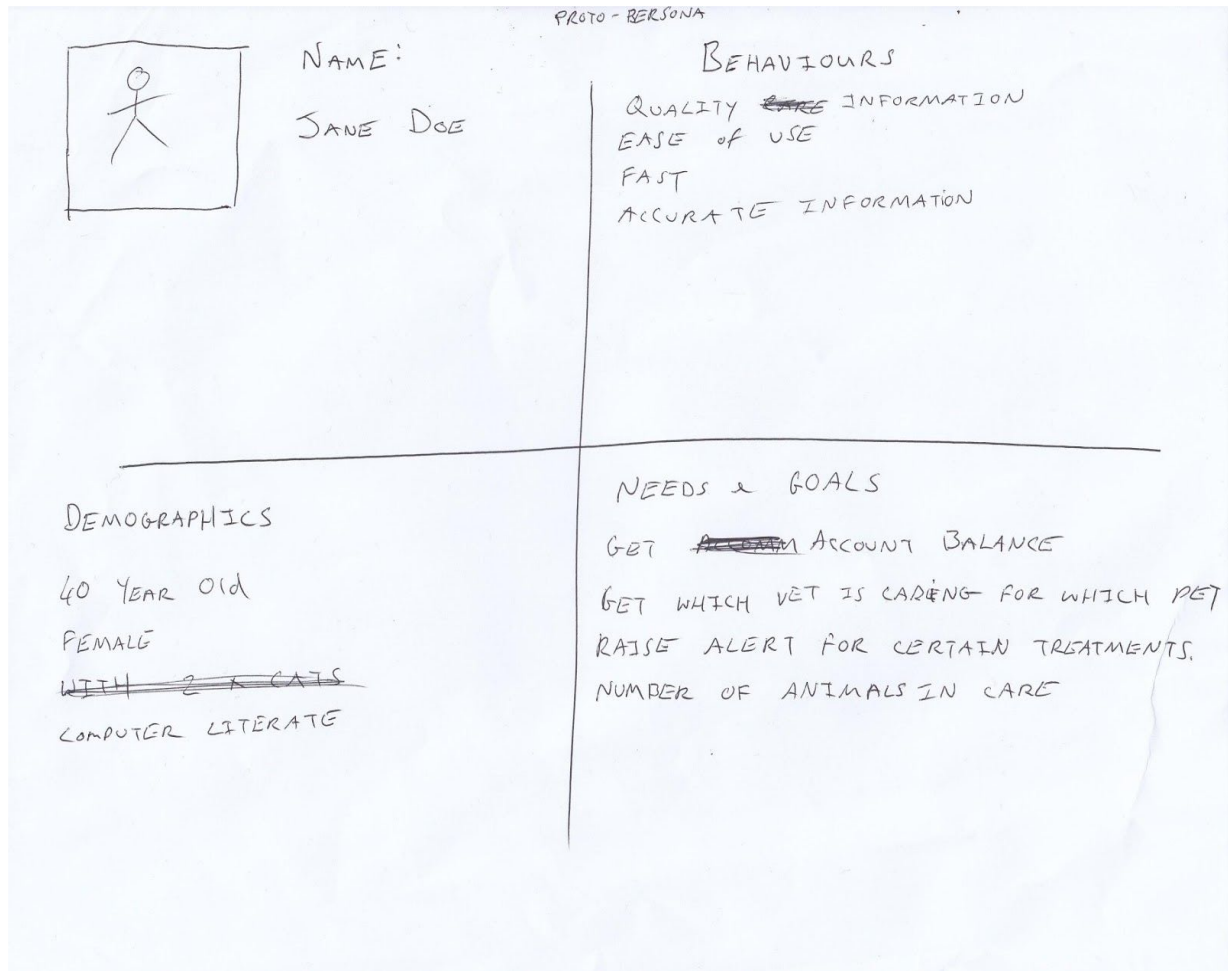 PROTO-BERSONA
NAME:
JANE DOE
BEHAVIOURS
QUALITY CARE INFORMATION
EASE of USE
FAST
ACCURATE INFORMATION
DEMOGRAPHICS
40 YEAR Old
FEMALE
WITH 2 X CATS
COMPUTER LITERATE
NEEDS & GOALS
GET ACCOUNT BALANCE
GET WHICH VET IS CARING FOR WHICH PET
RAISE ALERT FOR CERTAIN TREATMENTS.
NUMBER OF ANIMALS IN CARE